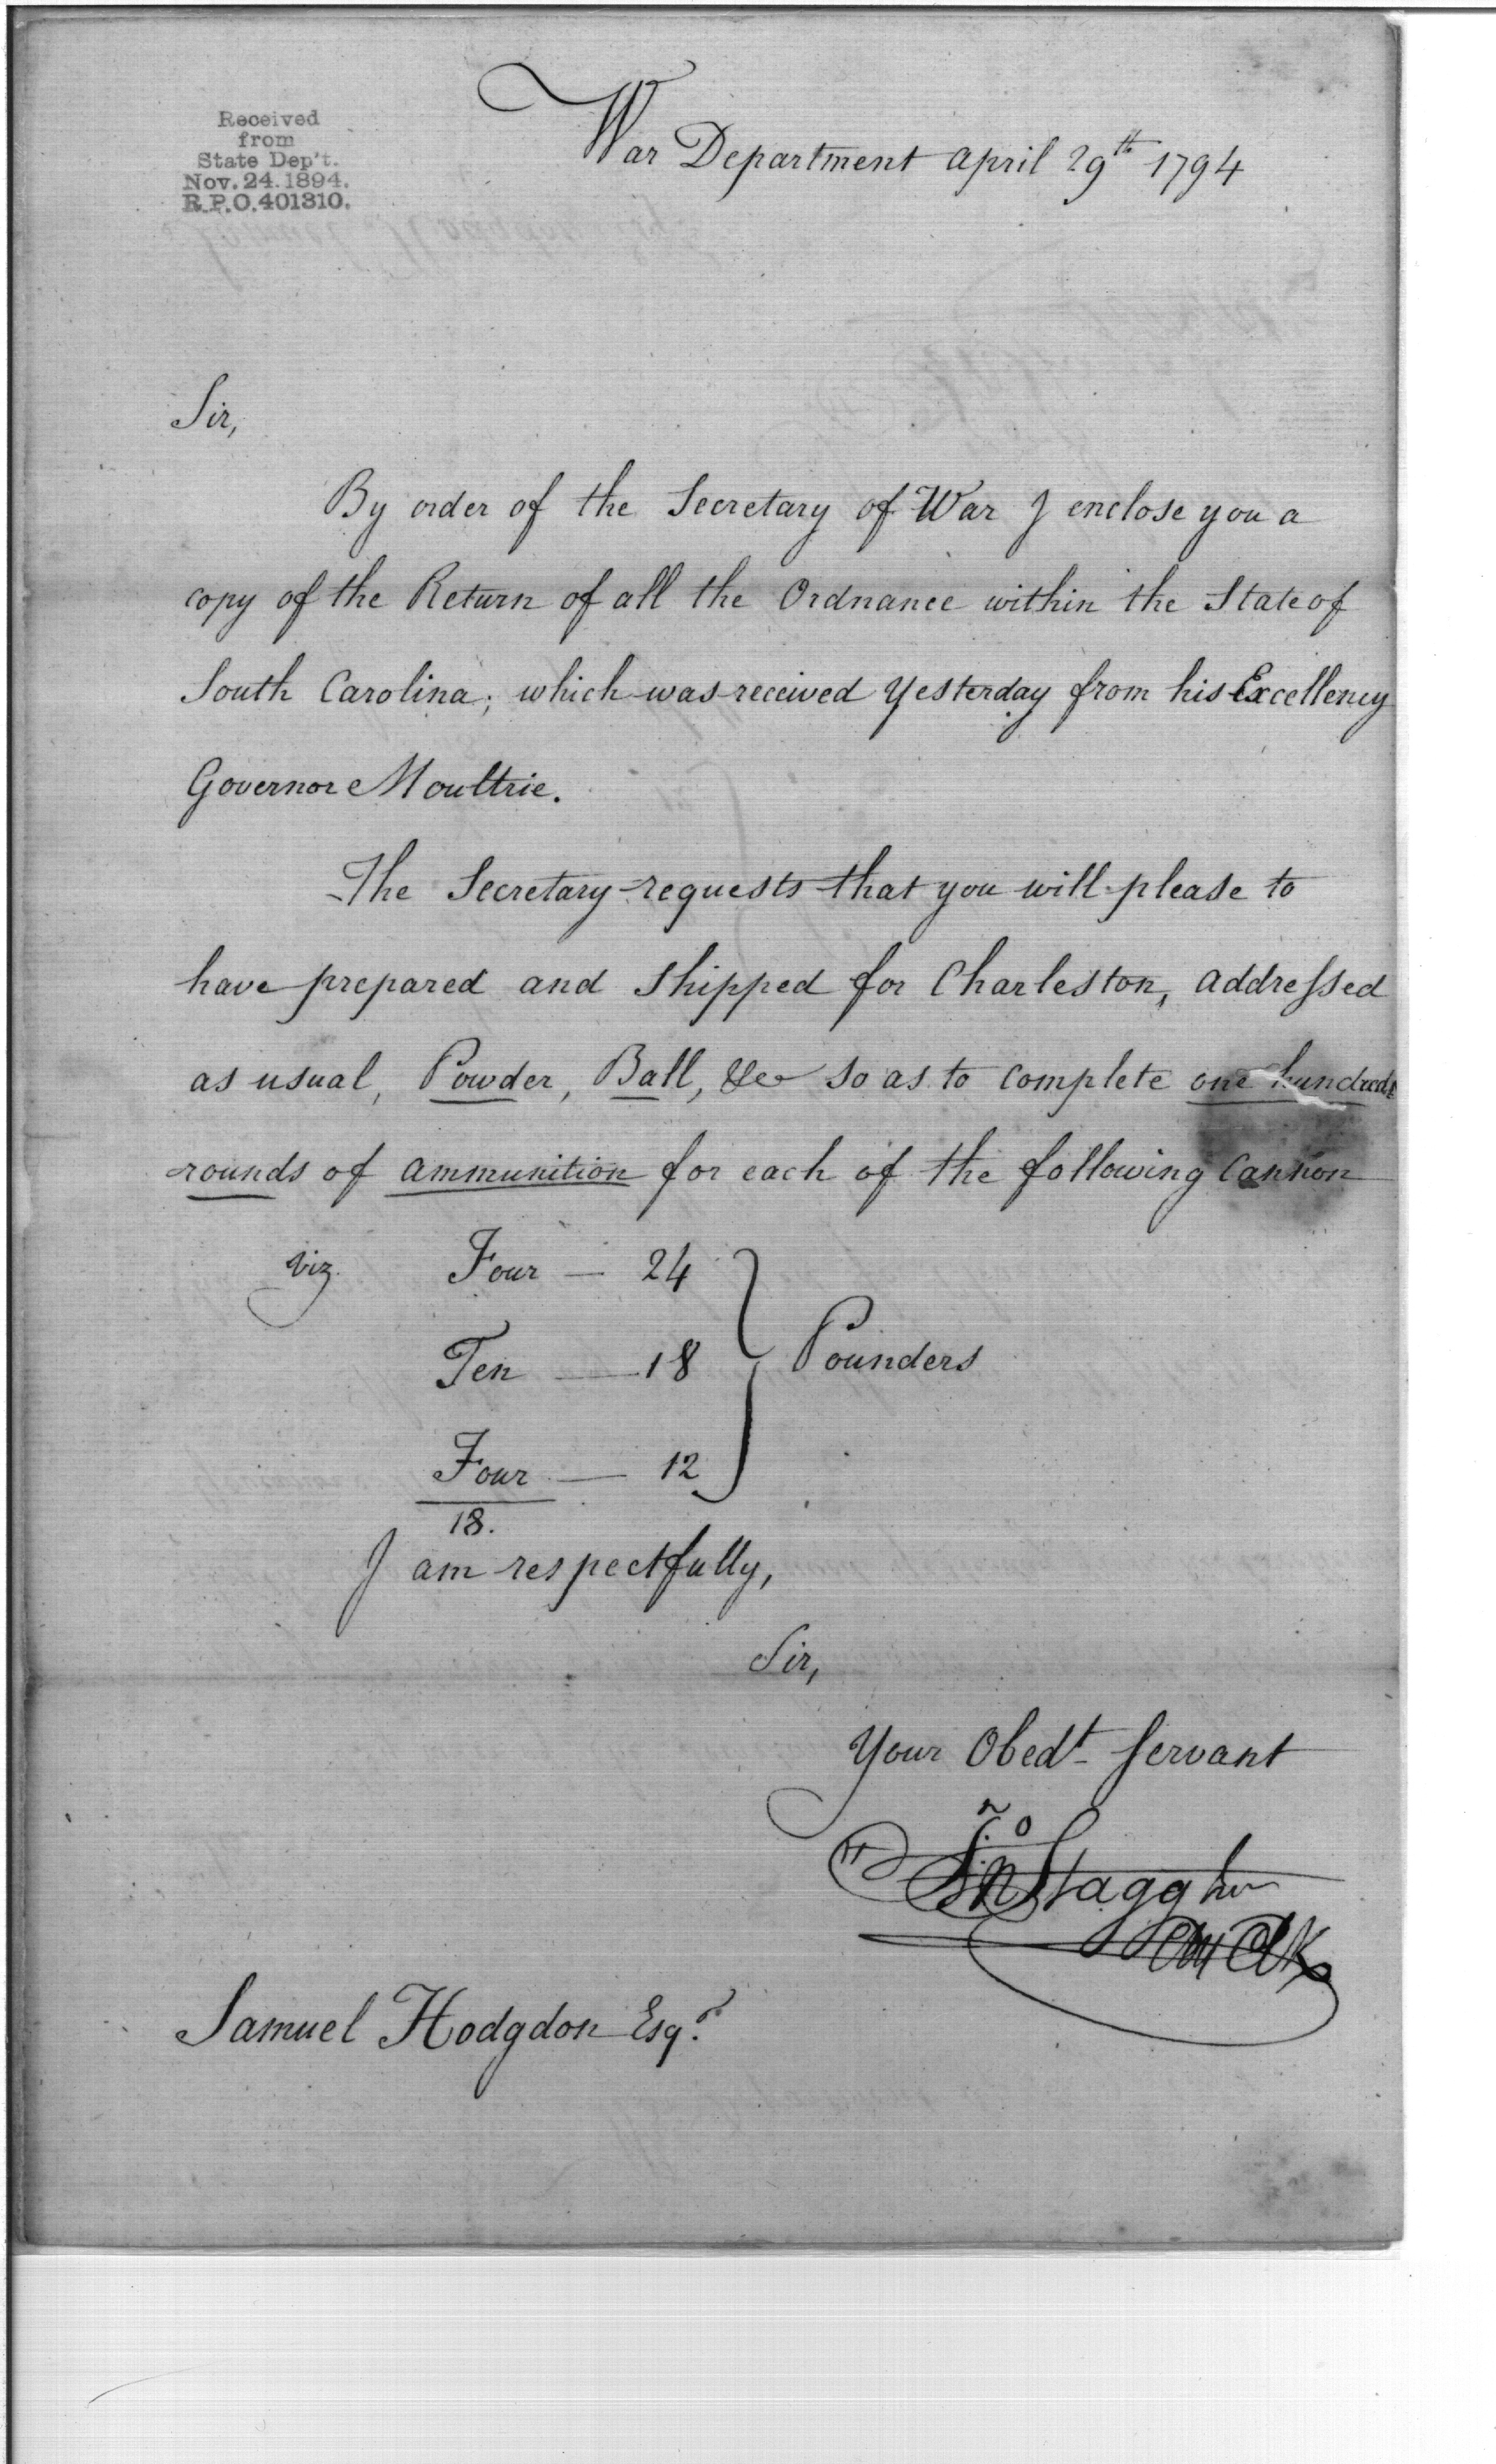 Received
from
State Dep't.
Nov. 24. 1894.
R.P.O. 401310.
War Department April 29th 1794
Sir,
By order of the Secretary of War I enclose you a
copy of the Return of all the Ordnance within the State of
South Carolina; which was received Yesterday from his Excellency
Governor Moultrie.
The Secretary requests that you will please to
have prepared and Shipped for Charleston, addressed
as usual, Powder, Ball, &c so as to complete one hundred
rounds of ammunition for each of the following Cannon
viz. Four — 24
Ten — 18 Pounders
Four — 12
18.
I am respectfully,
Sir,
Your Obedt Servant
Jno Stagg Junr
Clk
Samuel Hodgdon Esqr.